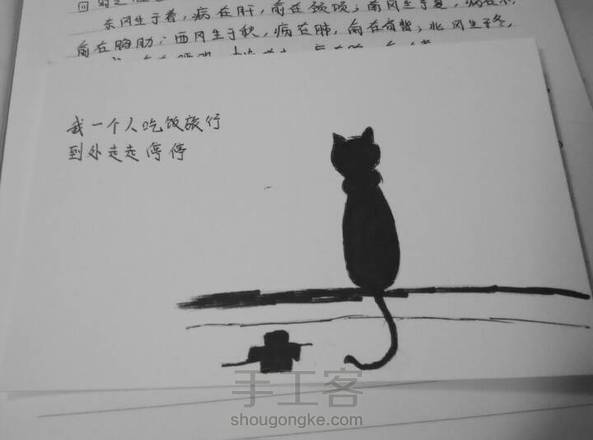 东风生于春,病在肝,俞在颈项;南风生于夏,病在
俞在胸肋;西风生于秋,病在肺,俞在肩背;北风生于冬,
我一个人吃饭旅行
到处走走停停
手工客
shougongke.com